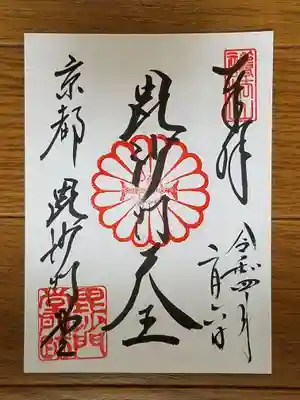 奉拝
令和四年
二月六日
毘沙門天王
京都 毘沙門堂
毘沙門
堂門跡